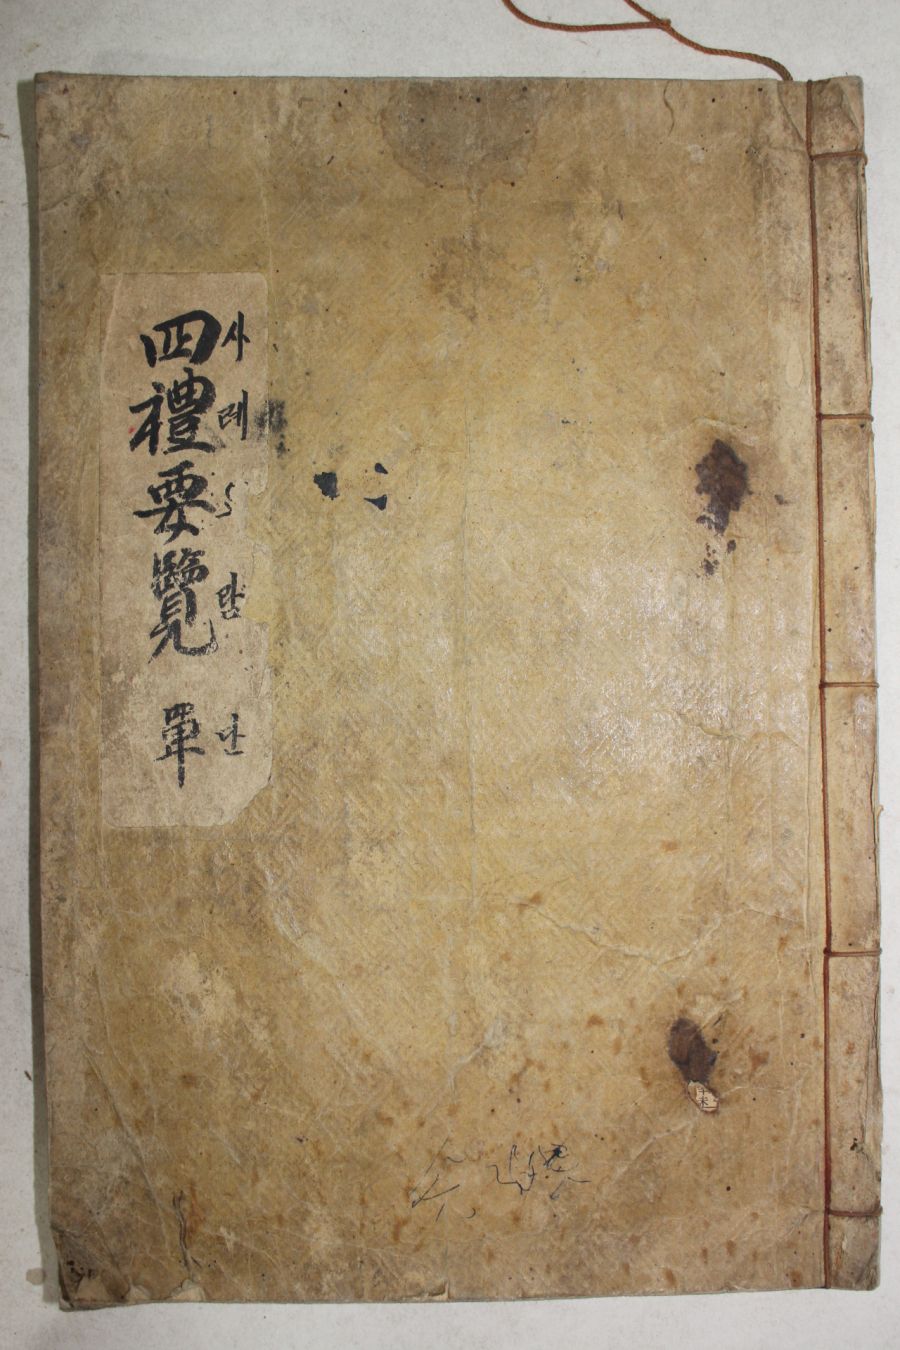 四禮要覽 單
사례 람 단